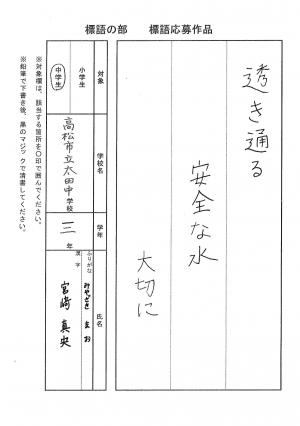 標語の部　標語応募作品
透き通る
安全な水
大切に
対象
小学生
中学生
学校名
高松市立太田中学校
学年
三年
氏名
ふりがな
みやざき まお
漢字
宮崎 真央
※対象欄は、該当する箇所を〇印で囲んでください。
※鉛筆で下書き後、黒のマジックで清書してください。